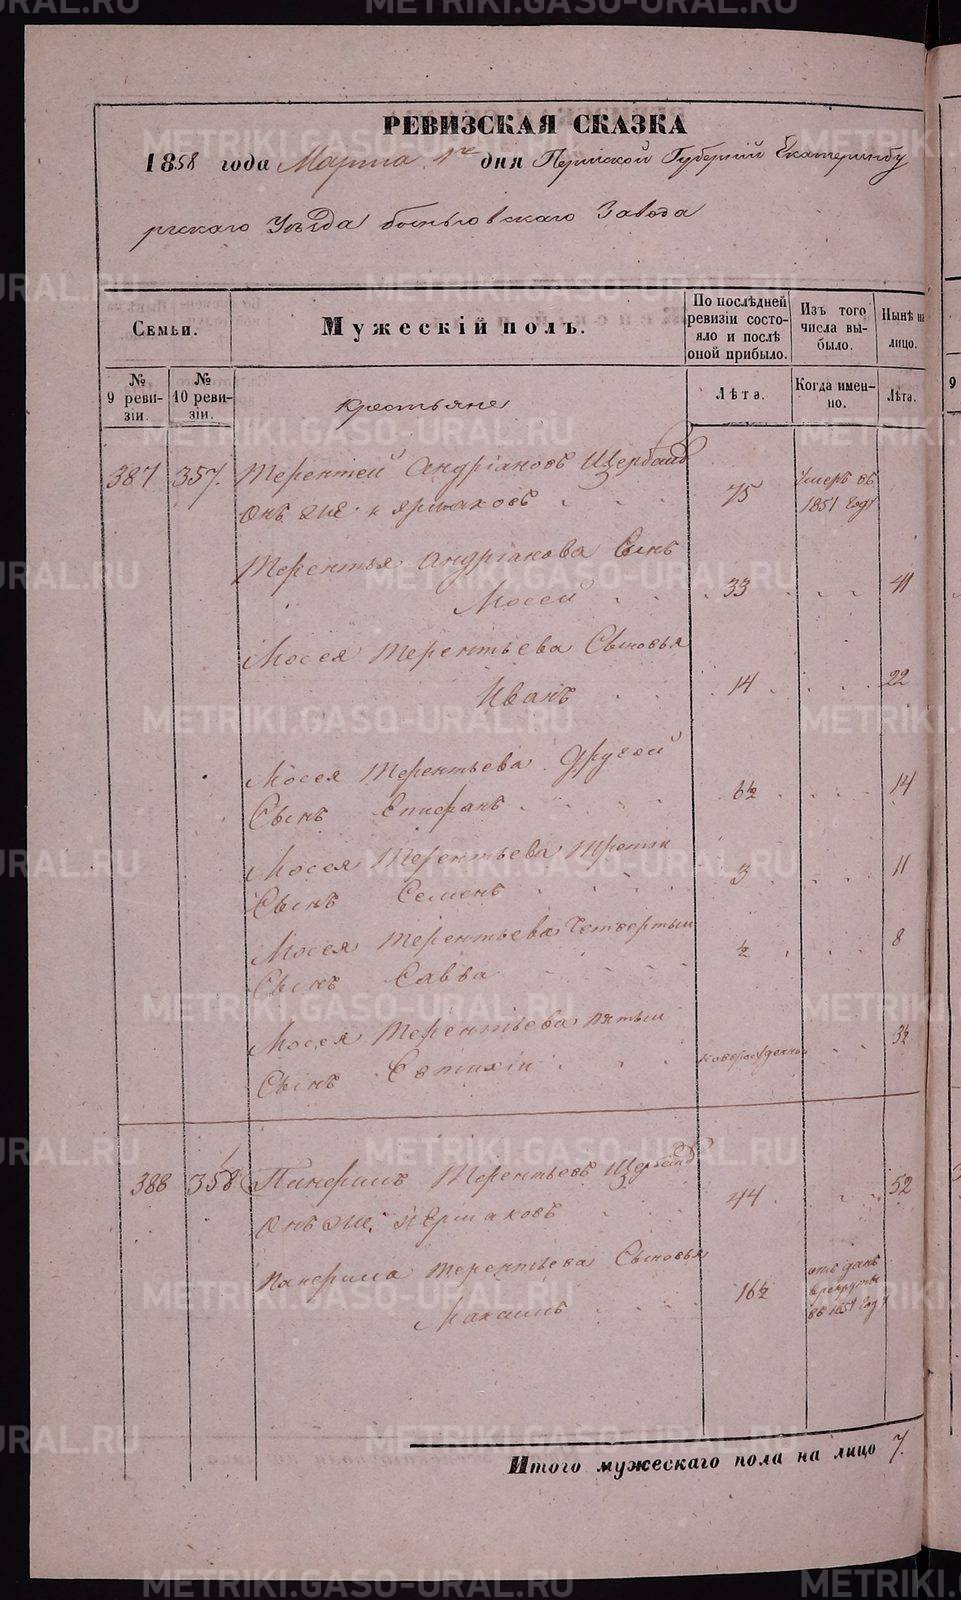 РЕВИЗСКАЯ СКАЗКА
1858 года Марта 1го дня Пермской Губерніи Екатеринбу
ргскаго Уѣзда Заводa
Семьи.
Мужескій полъ.
По послѣдней ревизіи состояло и послѣ оной прибыло.
Изъ того числа выбыло.
Нынѣ на лицо.
№ 9 ревизіи.
№ 10 ревизіи.
Крестьяне
Лѣта.
Когда именно.
Лѣта.
387 357. Терентей Андріановъ Щербаковъ 75 Умеръ въ
онъ же и Ярмаковъ 1851 году
Терентья Андріанова Сынъ
Мосей 33 41
Мосея Терентьева Сыновья
Иванъ 14 22
Мосея Терентьева Другой
Сынъ Епифанъ 6½ 14
Мосея Терентьева Третій
Сынъ Семенъ 3 11
Мосея Терентьева Четвертый
Сынъ Савва ½ 8
Мосея Терентьева пятый
Сынъ новорожденный 3½
388 358 Панфилъ Терентьевъ
онъ же и Ермаковъ 44 52
Панфила Терентьева Сыновья
Максимъ 16½ отданъ
в рекруты
въ 1851 году
Итого мужескаго пола на лицо 7.
METRIKI.GASO-URAL.RU